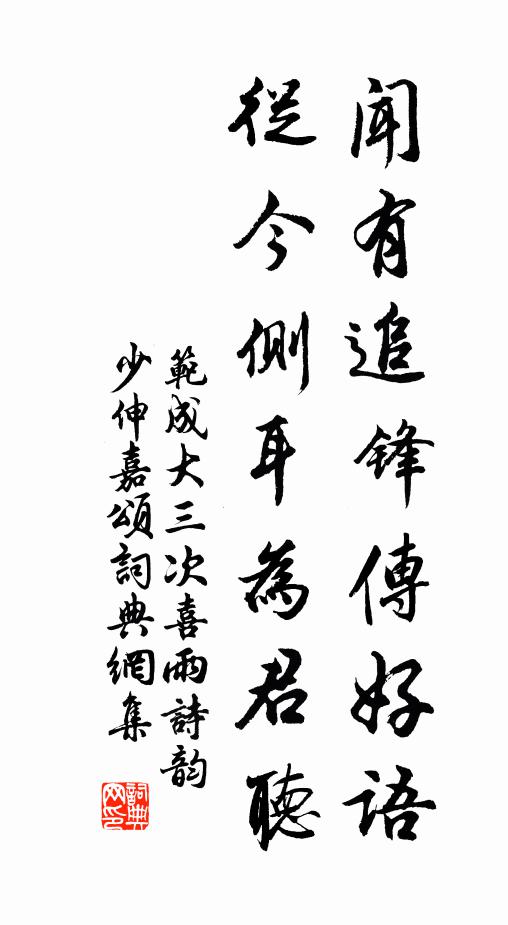 聞有追鋒傳好語
從今側耳為君聽
範成大三次喜雨詩韵
少伸嘉頌詞典網集
詞典网印